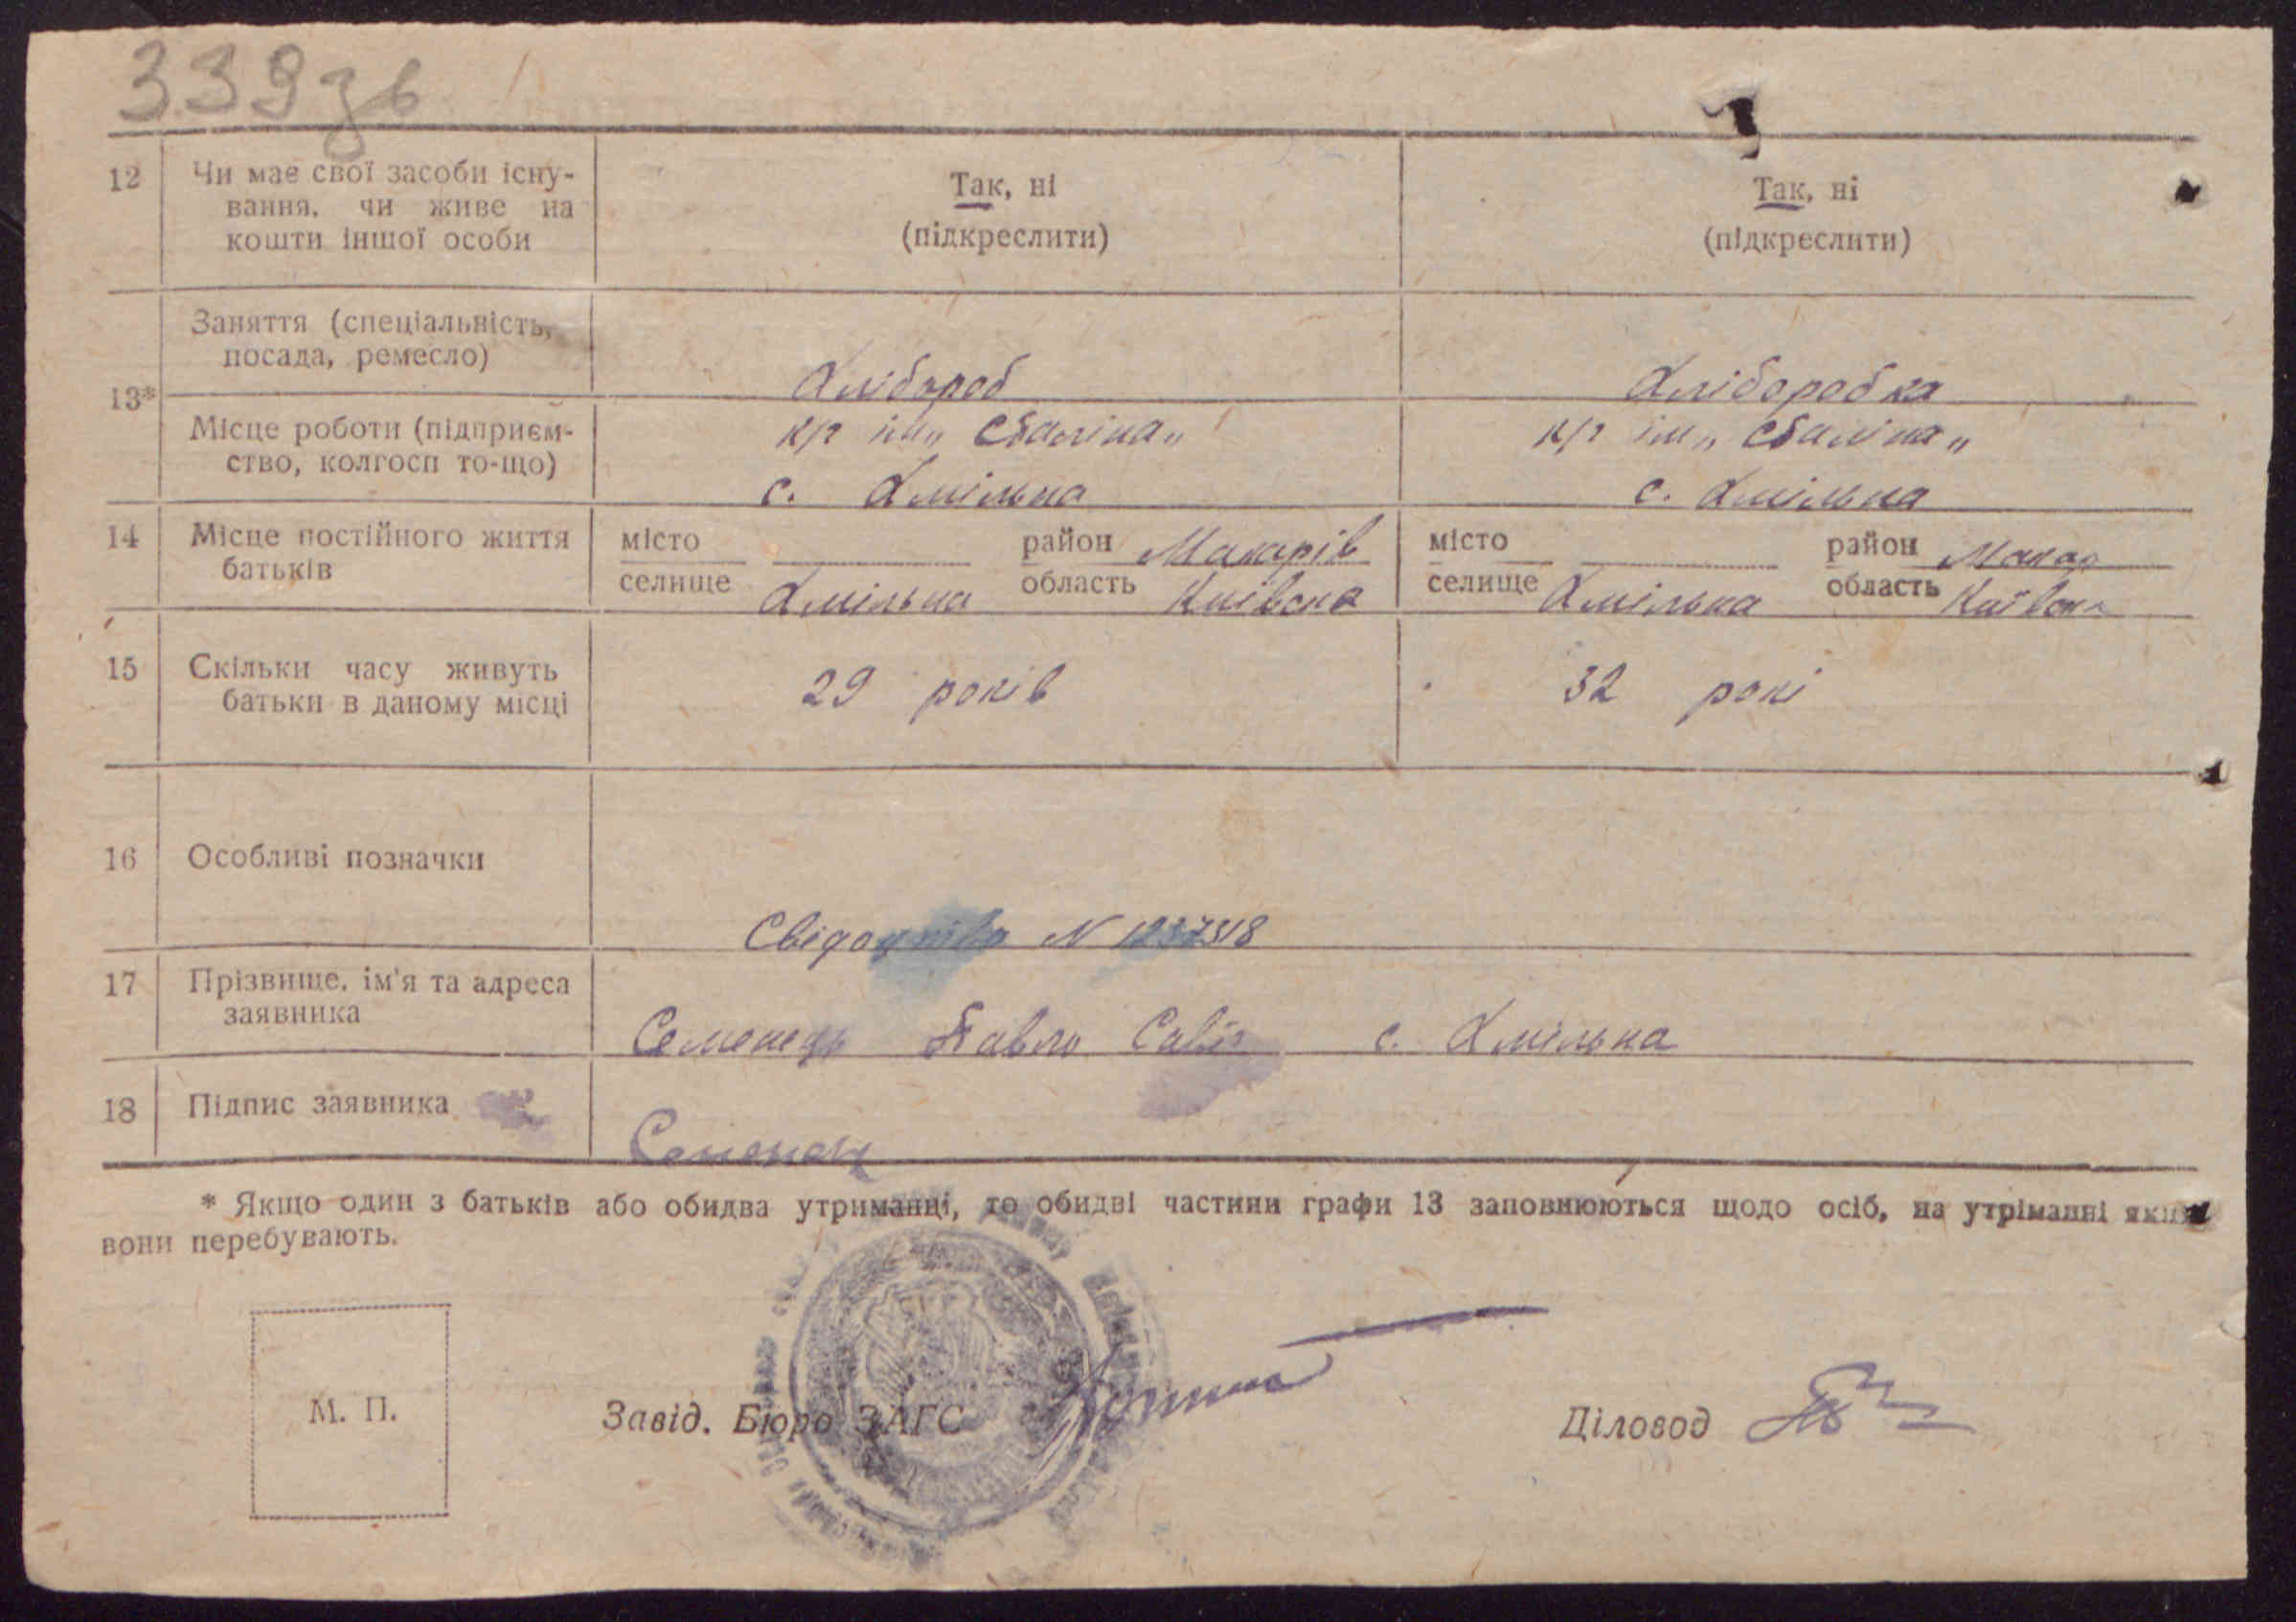 339зв
12 Чи має свої засоби існу- Так, ні Так, ні
вання, чи живе на
кошти іншої особи (підкреслити) (підкреслити)
Заняття (спеціальність,
посада, ремесло) Хлібороб Хліборобка
13*
Місце роботи (підприєм- к/г ім „Сталіна„ к/г ім „Сталіна„
ство, колгосп то-що) с. Хмільна с. Хмільна
14 Місце постійного життя місто район Макарів місто район Макар
батьків селище Хмільна область Київска селище Хмільна область Київска
15 Скільки часу живуть 29 років 32 рокі
батьки в даному місці
16 Особливі позначки
Свідоцтво N
17 Прізвище, ім'я та адреса
заявника Семенець Павло с. Хмільна
18 Підпис заявника
Семенец
* Якщо один з батьків або обидва утриманці, то обидві частини графи 13 заповнюються щодо осіб, на утріманні яких
вони перебувають.
М. П. Завід. Бюро ЗАГС Діловод